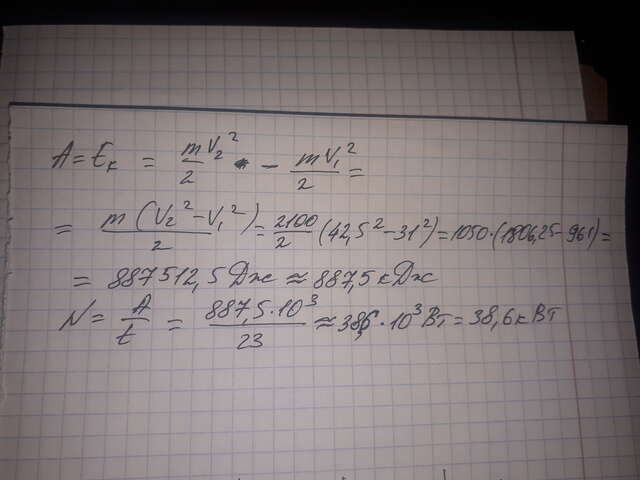 A = Eк = mV₂²/2 - mV₁²/2 =
= m(V₂² - V₁²)/2 = 2100/2 (42,5² - 31²) = 1050·(1806,25 - 961) =
= 887512,5 Дж ≈ 887,5 кДж
N = A/t = 887,5·10³/23 ≈ 38,6·10³ Вт = 38,6 кВт